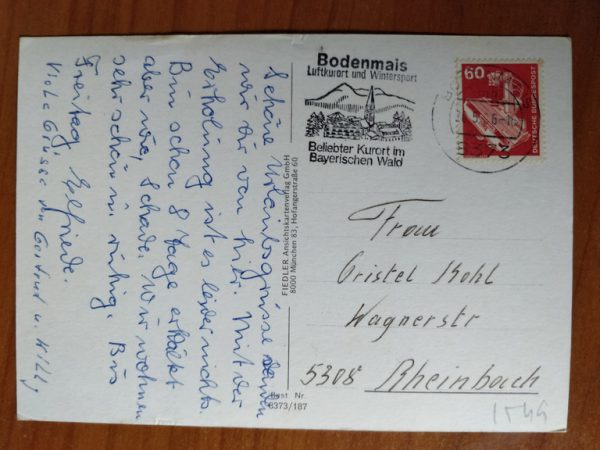 Schöne Urlaubsgrüsse senden
wir dir von hier. Mit der
Erholung ist es leider nichts.
Bin schon 8 Tage erkältet
aber wie, Schade. Wir wohnen
sehr schön u. ruhig. Bis
Freitag Elfriede.
Viele Grüsse von Gertrud u. Willy
FIEDLER Ansichtskartenverlag GmbH
8000 München 83, Hofangerstraße 60
Best Nr.
8373/187
Bodenmais
Luftkurort und Wintersport
Beliebter Kurort im
Bayerischen Wald
60
DEUTSCHE BUNDESPOST
Frau
Cristel Kohl
Wagnerstr
5308 Rheinbach